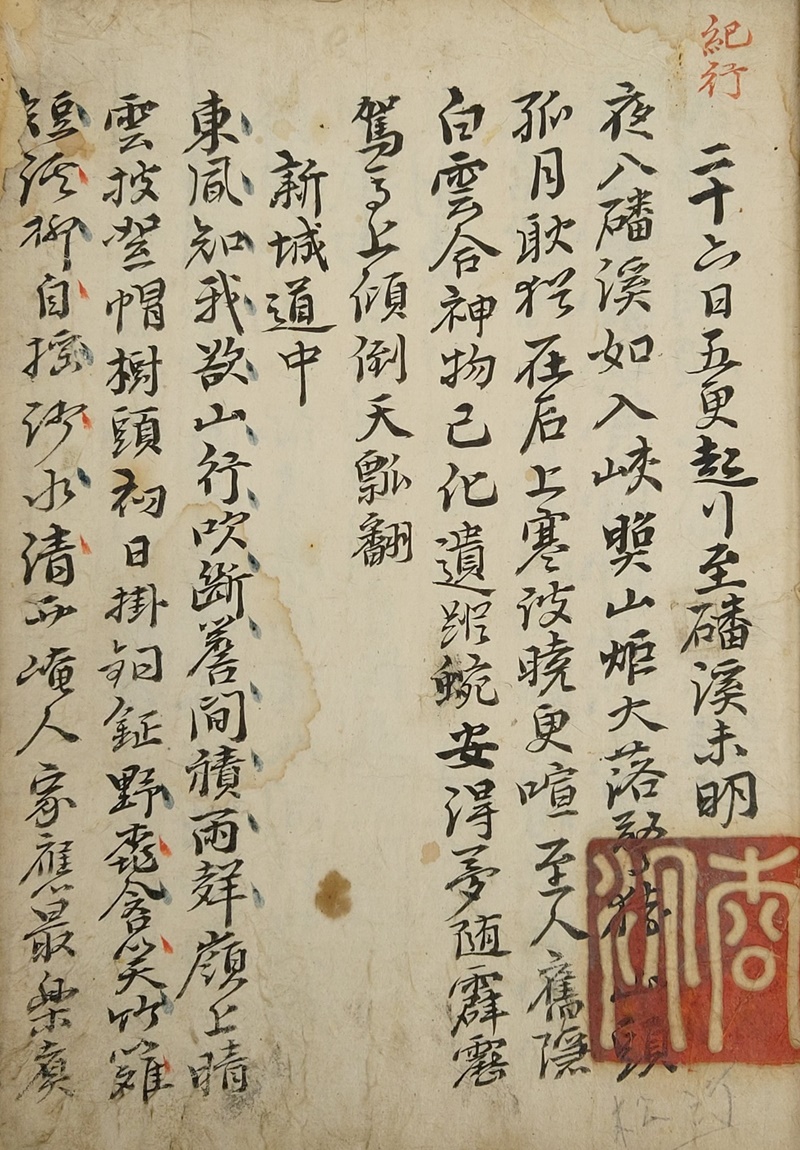 紀行
二十六日五更起行至磻溪未明
夜入磻溪如入峽照山炬火落驚猿山頭
孤月耿猶在石上寒波曉更喧至人舊隱
白雲合神物已化遺蹤蜿安得夢随霹靂
駕馬上傾倒天瓢翻
新城道中
東風知我欲山行吹斷簷間積雨聲嶺上晴
雲披絮帽樹頭初日掛銅鉦野桃含笑竹籬
短溪柳自搖沙水清西崦人家應最樂煑